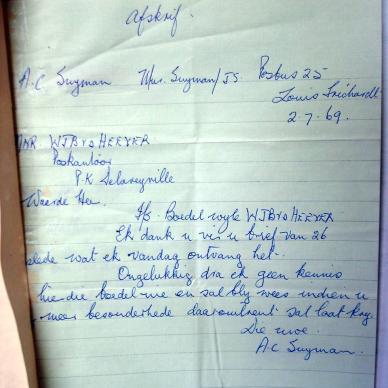 Afskrif.
A.C Snyman Mev. Snyman/J.S. Posbus 25
Louis Trichardt
2.7.69.
MNR. WJB v d HEEVER
Poskantoor
P.K Delareyville
Waarde Heer.
Boedel wyle WJB v d HEEVER
Ek dank u vir u brief van 26
dede wat ek vandag ontvang het.
Ongelukkig dra ek geen kennis
hierdie boedel nie en sal bly wees indien u
meer besonderhede daaromtrent sal laat kry.
Die uwe.
A.C Snyman.